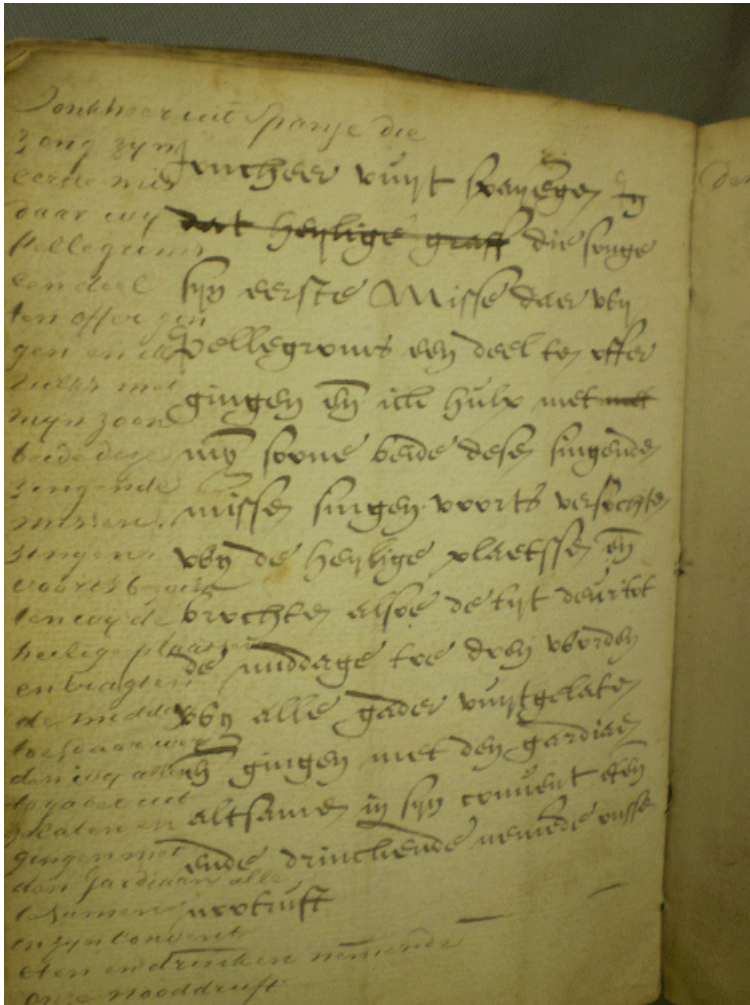 Jonkheer uit Spanje die
zong zyn
eerste mis
daar wy
pellegrims
een deel
ten offer gin
gen en ik
met
myn zoon
beide deze
zingende
missen
zingen
voorts
ten wy de
heilige plaatsen
en bragten
de middag
toe daar wer
den wy alle
te gader uit
gelaten en
gingen met
den gardiaan alle
te samen
in zyn convent
eten en drinken nemende
onze nooddruft
Joncheer vuyt spaengen
dat heylige graff die songe
syn eerste Misse daer wy
Pellegroms een deel ten offer
gingen en ick hulp met met
myn soone beide desen singende
missen singen voorts versochten
wy de heylige plaetssen en
brochten alsoe de tyt deur tot
de middage toe doen worden
wy alle gader vuytgelaten
en gingen met den gardiaen
altsamen in syn convent eten
ende drinckende nemende onsse
nootruft